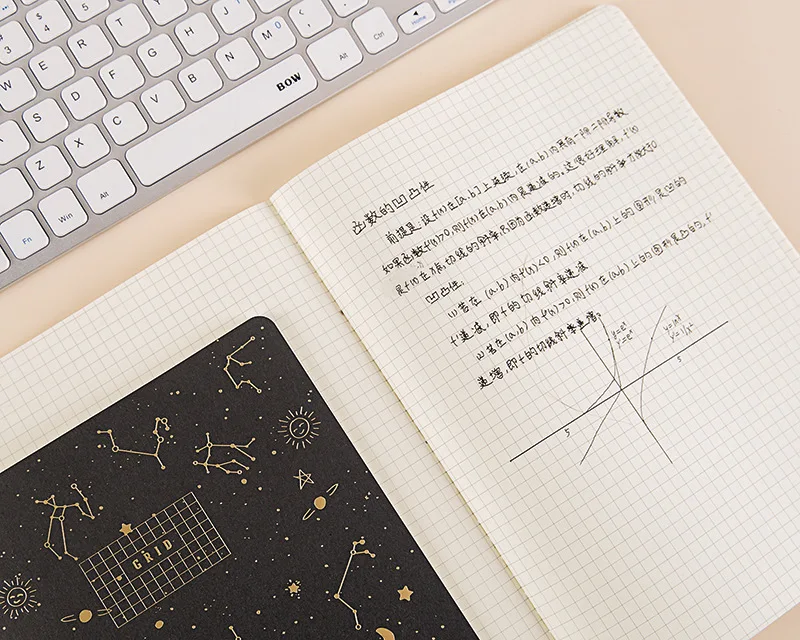 函数的凹凸性
前提是:设f(x)在[a,b]上连续,在(a,b)内具有一阶二阶导数
如果函数f'(x)>0,则f(x)在(a,b)内是递增的,这很好理解,f'(x)
是f(x)在x点切线的斜率,只因为函数递增时,切线的斜率才能大于0
凹凸性
(1)若在(a,b)内f''(x)<0,则f(x)在(a,b)上的图形是凹的
f'递减,即f的切线斜率递减
(2)若在(a,b)内f''(x)>0,则f(x)在(a,b)上的图形是凸的,f'
递增,即f的切线斜率递增。
y=eˣ
y'=eˣ
y=lnx
5
5
GRID
3
4
5
W
E
R
T
Y
S
D
F
G
H
J
1
Z
X
C
V
B
N
M
0
Fn
Win
Alt
BOW
Alt
Ctrl
Home